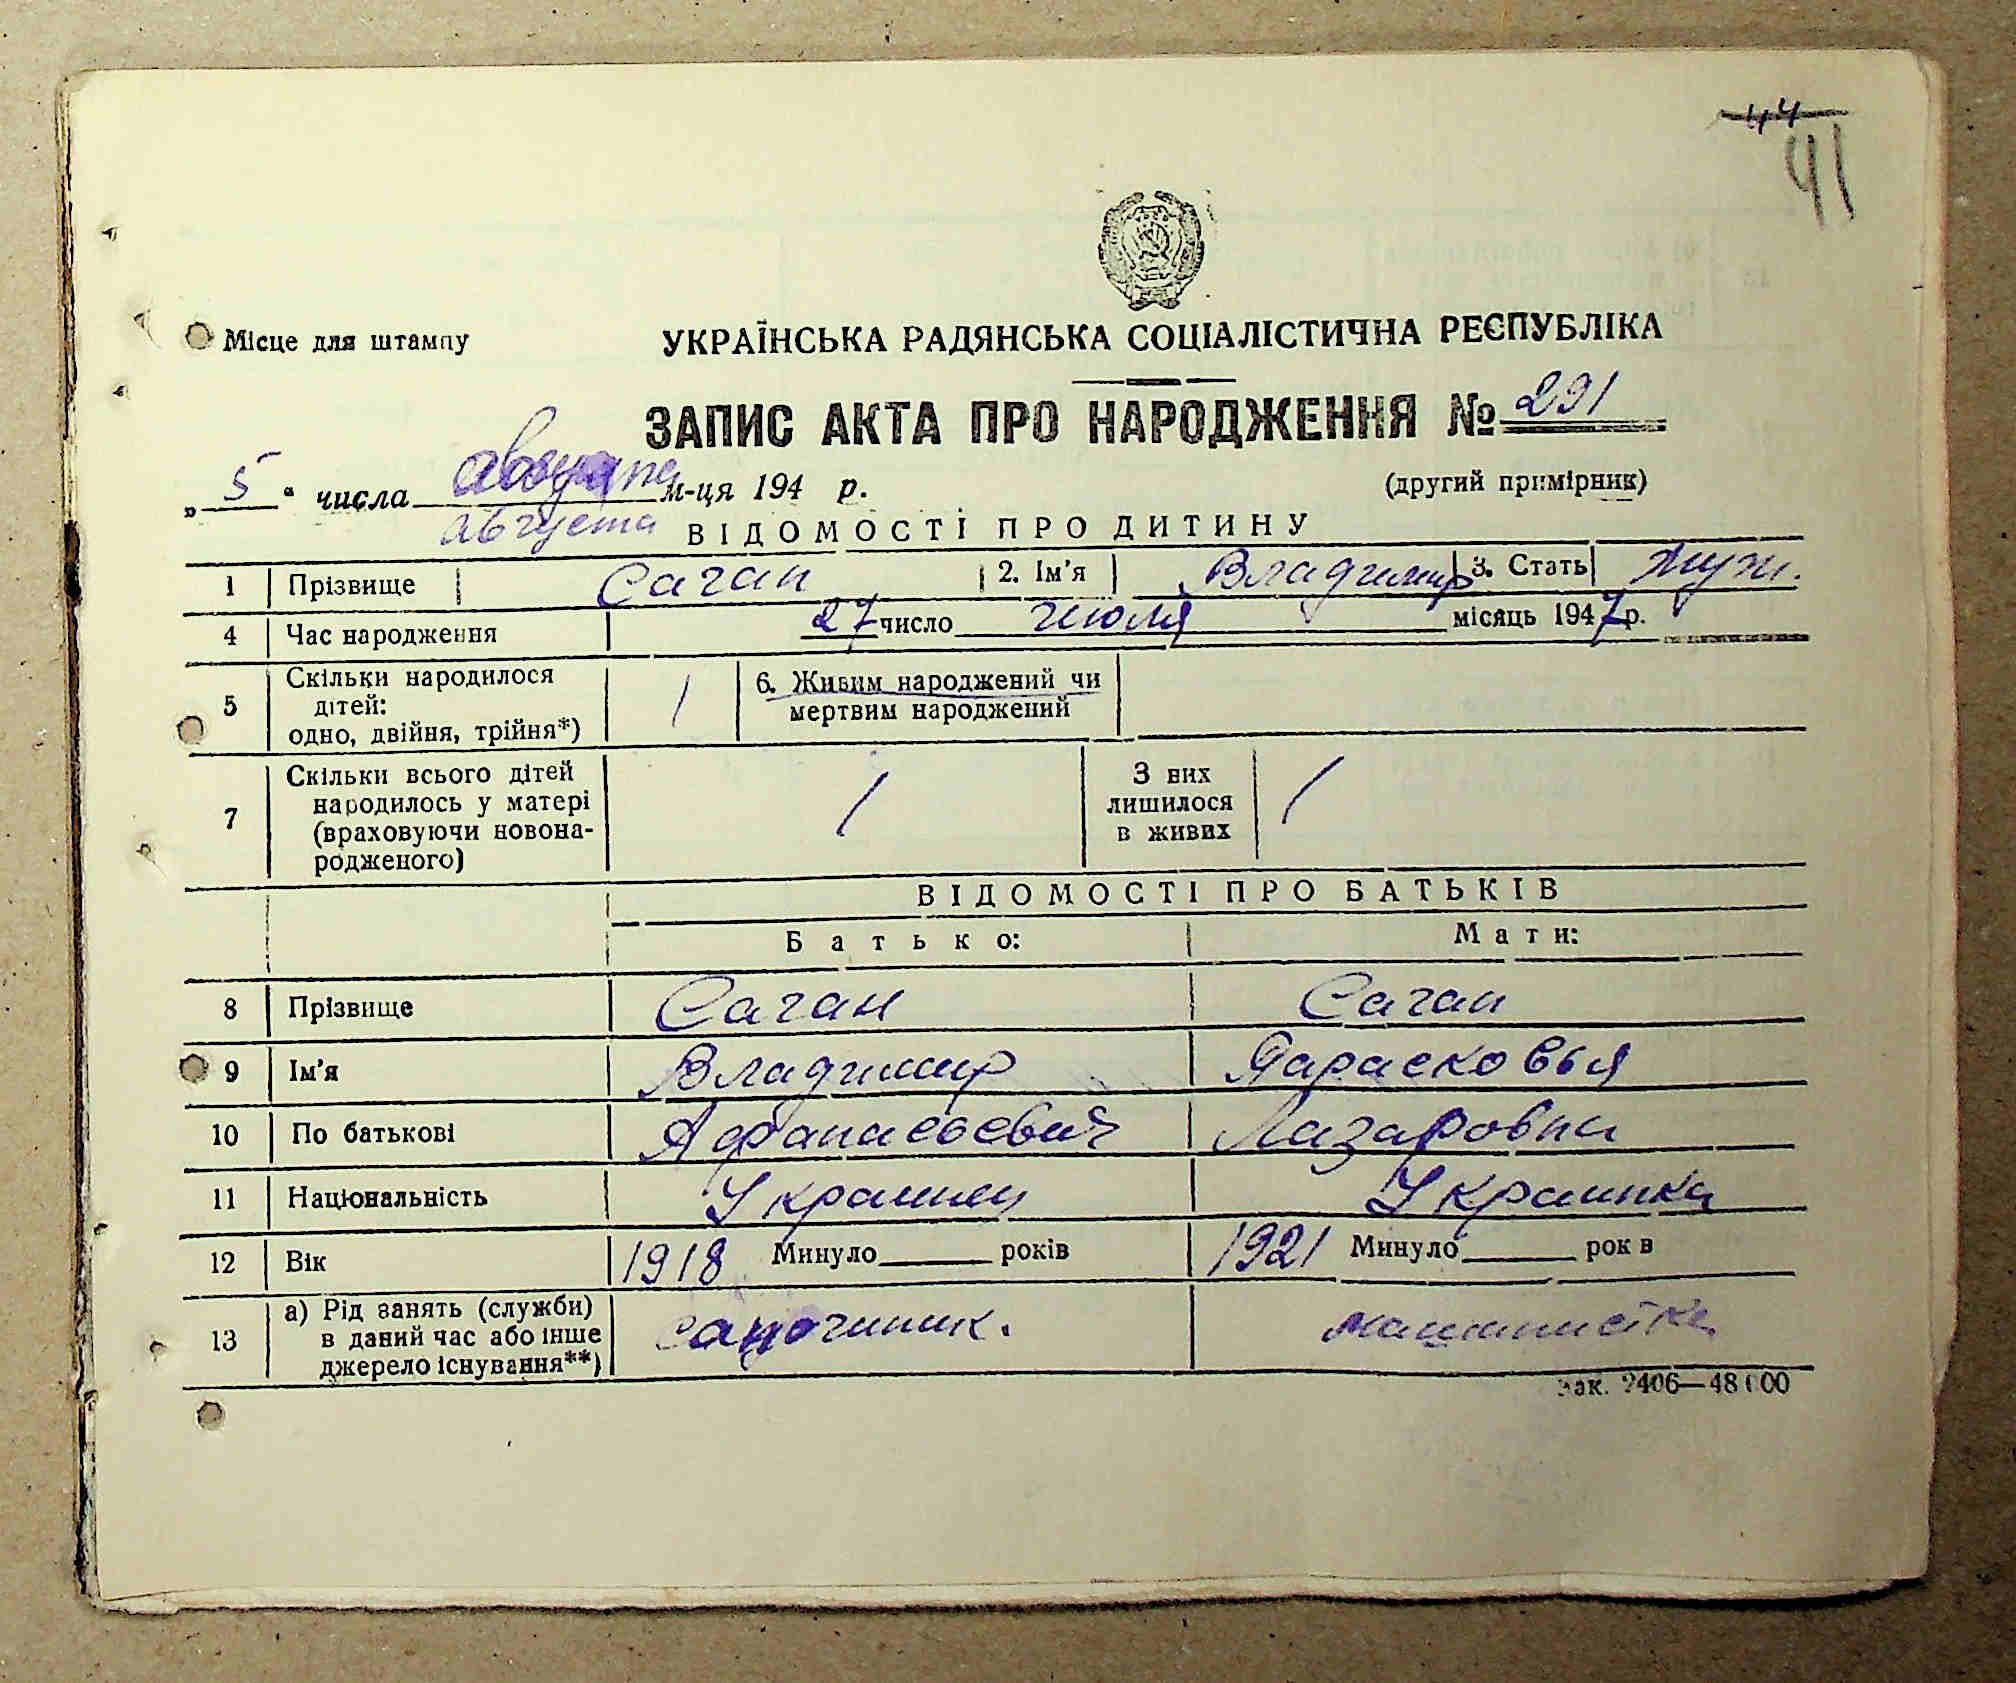 44
41
Місце для штампу
УКРАЇНСЬКА РАДЯНСЬКА СОЦІАЛІСТИЧНА РЕСПУБЛІКА
ЗАПИС АКТА ПРО НАРОДЖЕННЯ № 291
„ 5 “ числа августа м-ця 194 р.
(другий примірник)
августа
ВІДОМОСТІ ПРО ДИТИНУ
1 Прізвище Саган 2. Ім'я Владимир 3. Стать муж.
4 Час народження 27 число июля місяць 1947 р.
5 Скільки народилося дітей: одно, двійня, трійня*) 1 6. Живим народжений чи мертвим народжений
7 Скільки всього дітей народилось у матері (враховуючи новона-родженого) 1 З них лишилося в живих 1
ВІДОМОСТІ ПРО БАТЬКІВ
Батько: Мати:
8 Прізвище Саган Саган
9 Ім'я Владимир Парасковья
10 По батькові Афанасьевич Лазаровна
11 Національність Украинец Украинка
12 Вік 1918 Минуло років 1921 Минуло рок в
13 а) Рід занять (служби) в даний час або інше джерело існування**) сапожник. машинистка
Зак. 2406—48000